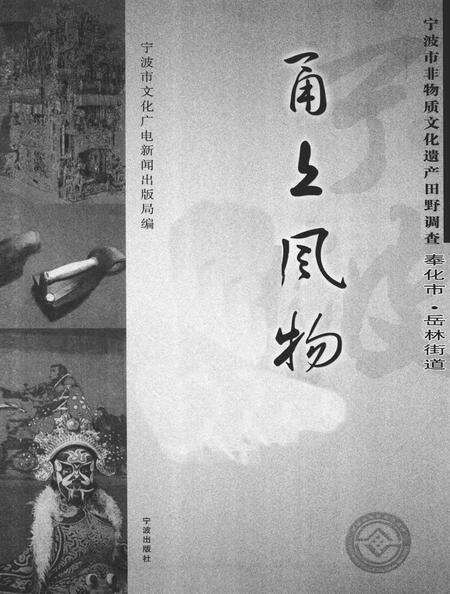 宁波市非物质文化遗产田野调查 奉化市·岳林街道
甬上风物
宁波市文化广电新闻出版局编
宁波出版社